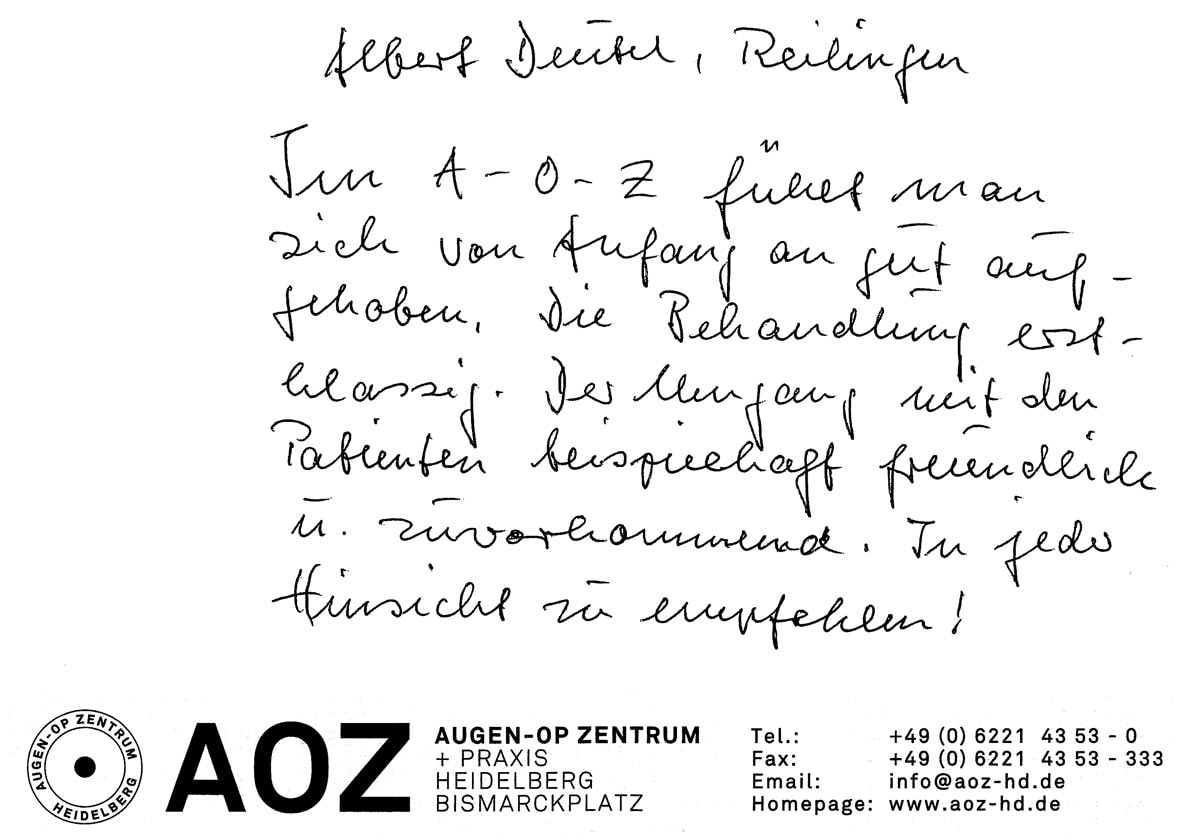 Albert Deutsch, Reilingen
Im A-O-Z fühlt man
sich von Anfang an gut auf-
gehoben. Die Behandlung erst-
klassig. Der Umgang mit den
Patienten beispielhaft freundlich
u. zuvorkommend. In jeder
Hinsicht zu empfehlen!
AUGEN-OP ZENTRUM
HEIDELBERG
AOZ
AUGEN-OP ZENTRUM
+ PRAXIS
HEIDELBERG
BISMARCKPLATZ
Tel.: +49 (0) 6221 43 53 - 0
Fax: +49 (0) 6221 43 53 - 333
Email: info@aoz-hd.de
Homepage: www.aoz-hd.de